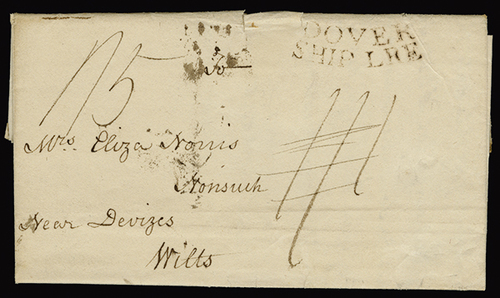 DOVER
SHIP LRE
To
Mrs. Eliza Norris
Nonsuch
Near Devizes
Wilts